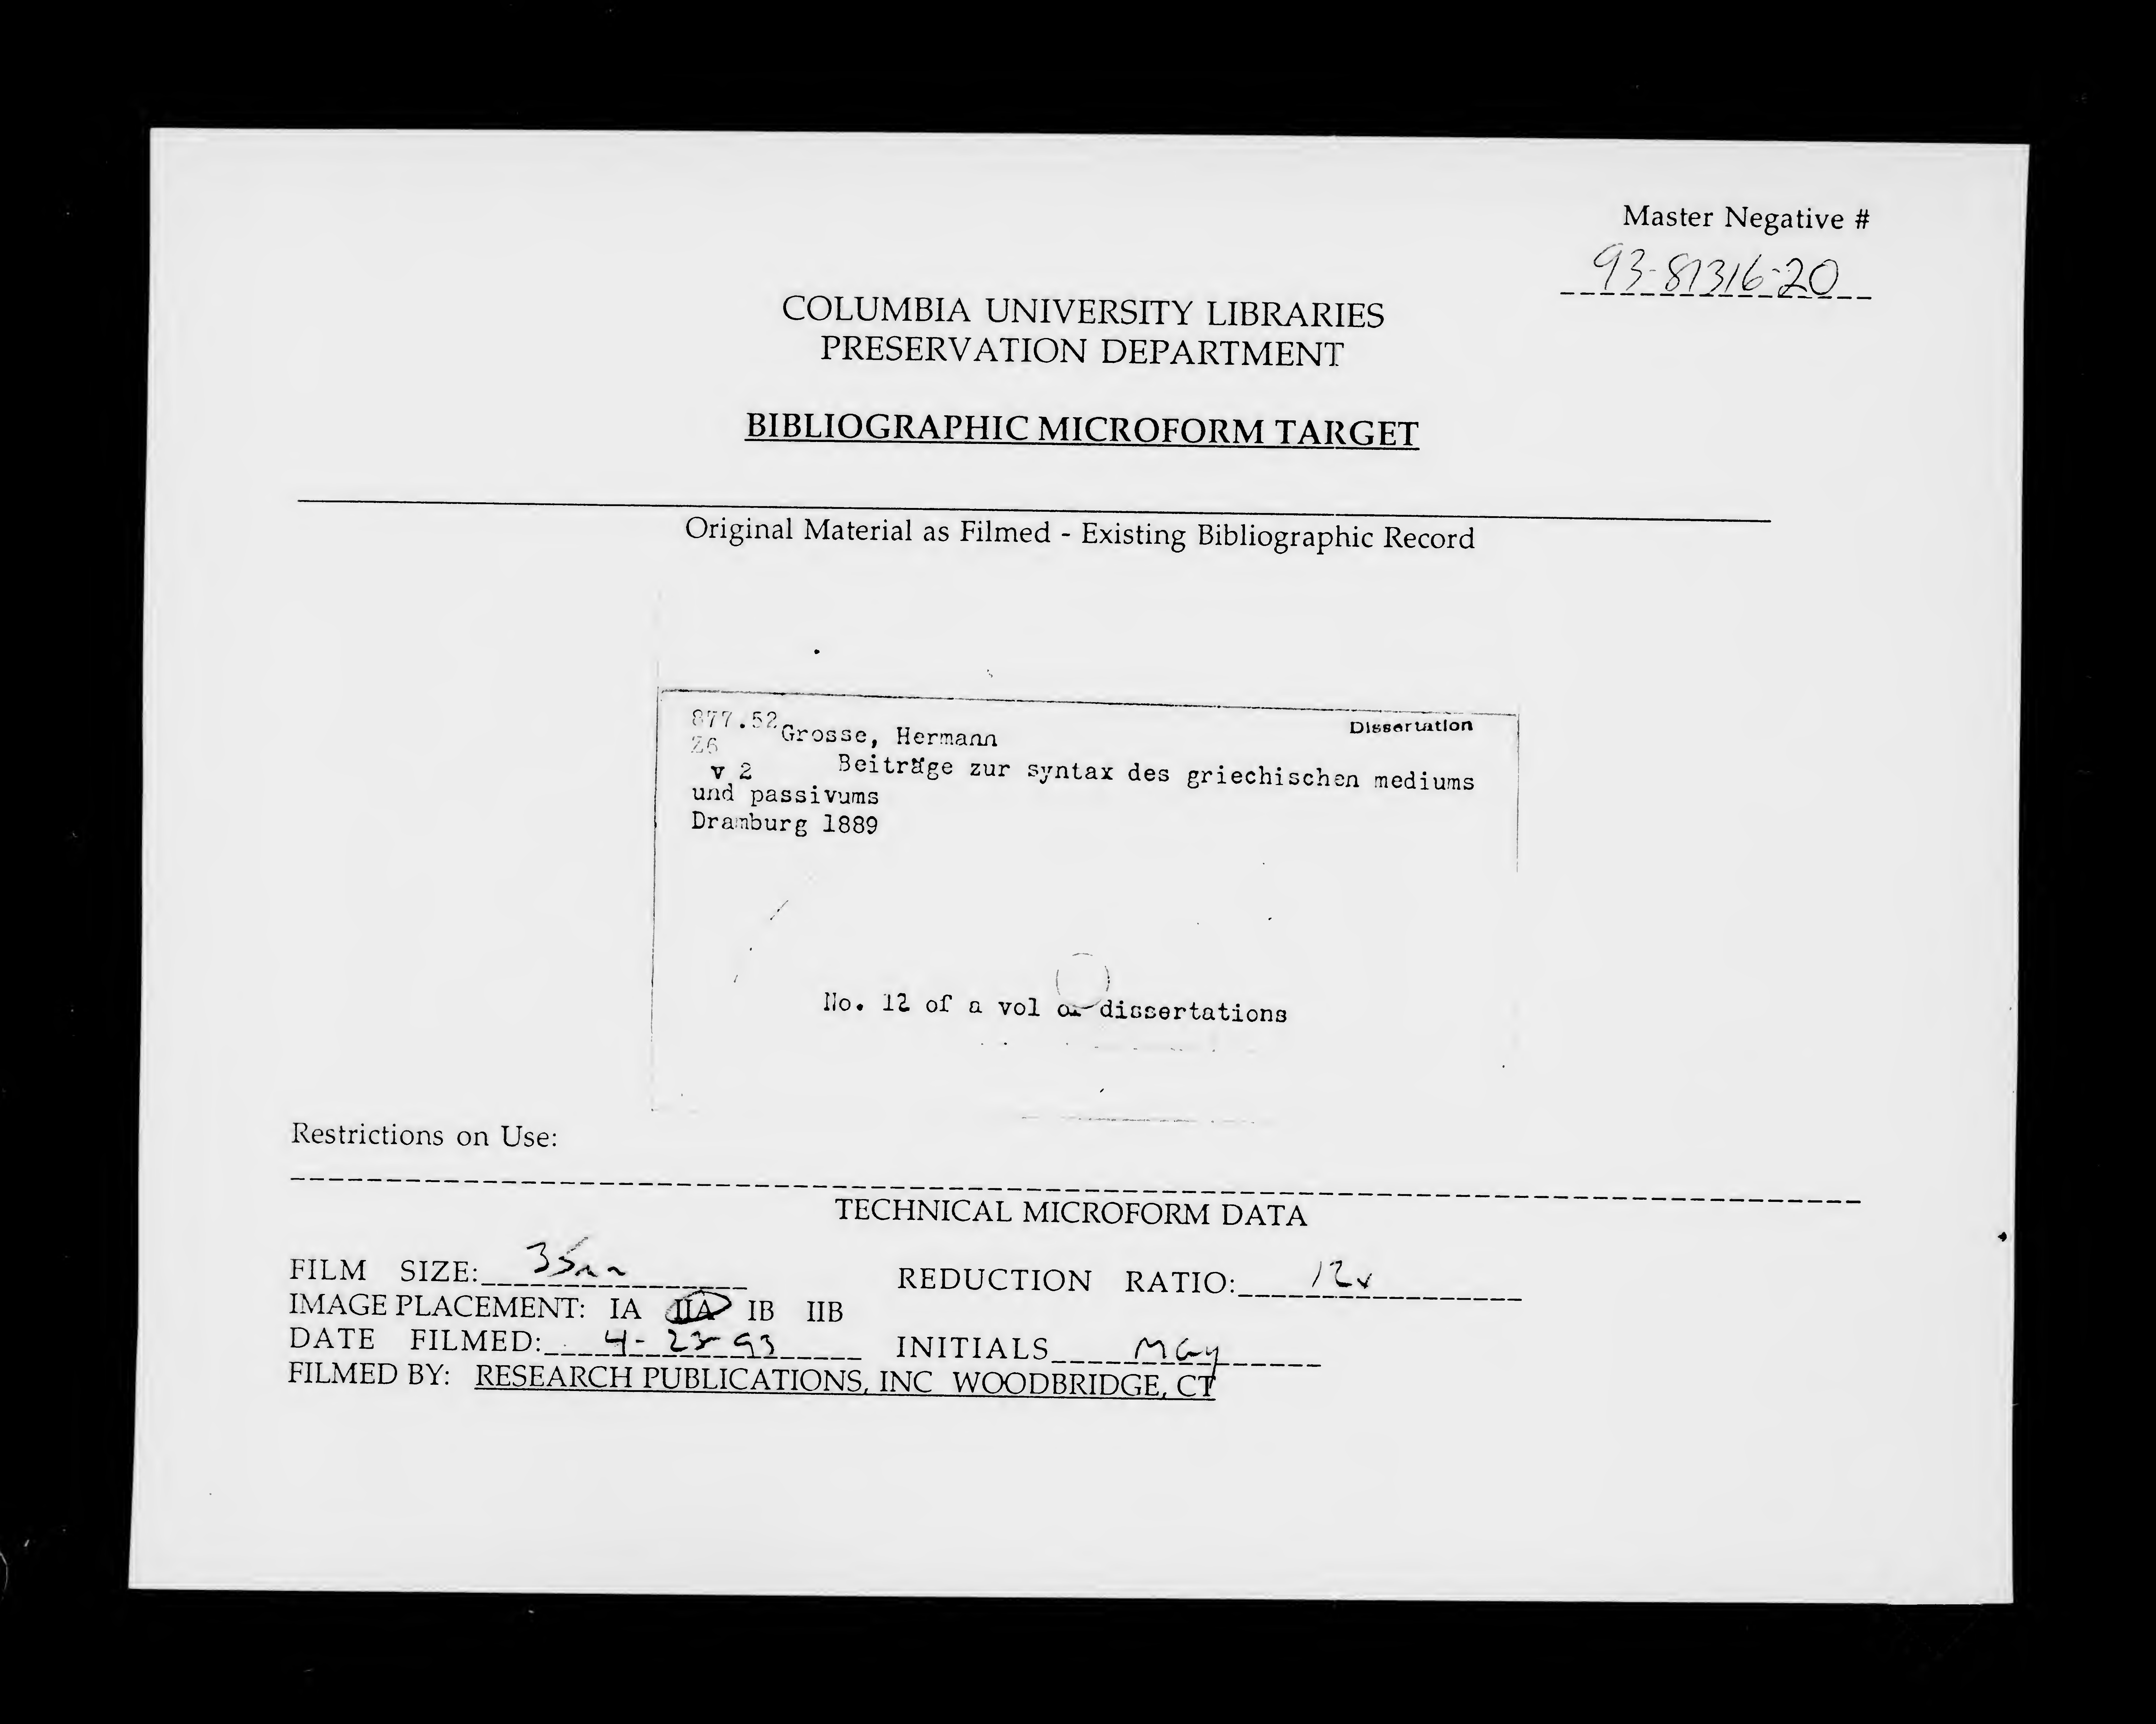 Master Negative #
93-81316-20
COLUMBIA UNIVERSITY LIBRARIES
PRESERVATION DEPARTMENT
BIBLIOGRAPHIC MICROFORM TARGET
Original Material as Filmed - Existing Bibliographic Record
877.52 Grosse, Hermann Dissertation
Z6
v 2 Beiträge zur syntax des griechischen mediums
und passivums
Dramburg 1889
No. 12 of a vol of dissertations
Restrictions on Use:
TECHNICAL MICROFORM DATA
FILM SIZE: 35mm REDUCTION RATIO: 12x
IMAGE PLACEMENT: IA IIA IB IIB
DATE FILMED: 4-23-93 INITIALS MGy
FILMED BY: RESEARCH PUBLICATIONS, INC WOODBRIDGE, CT